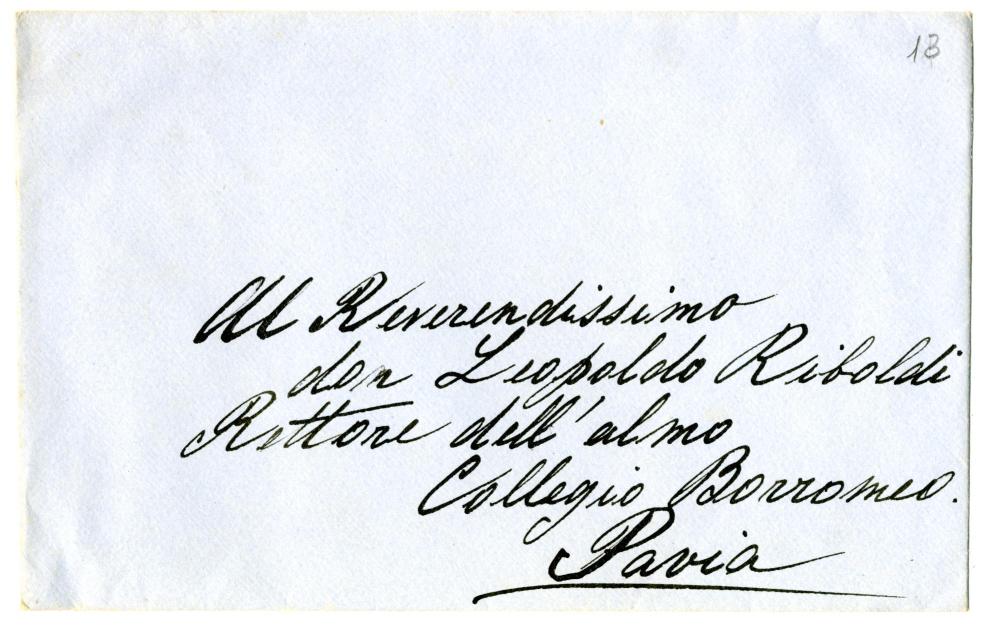 13
Al Reverendissimo
don Leopoldo Riboldi
Rettore dell'almo
Collegio Borromeo.
Pavia